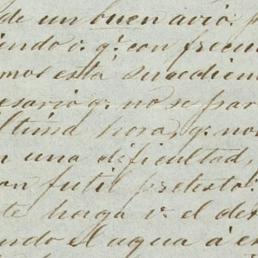 de un buen avío: p
iendo i q.e con frecuen
mos está sucedien
esario q. no se par
ltima hora, q. no
n una dificultad,
on futil pretesto:
te haga v. el de
ndo el agua á es